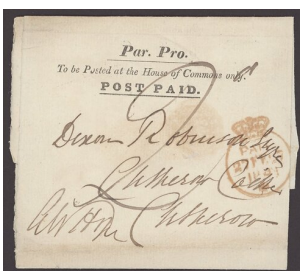 Par. Pro.
To be Posted at the House of Commons only.
POST PAID.
Dixon Robinson Esqre
Clitheroe Castle
Clitheroe
PAID